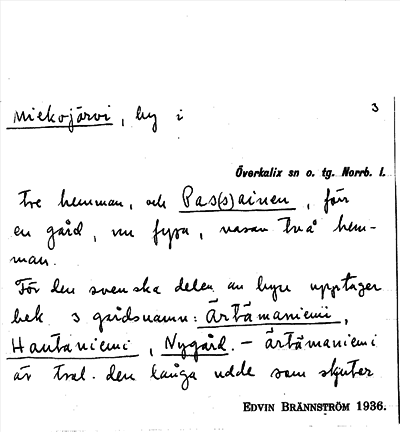 Miekojärvi, by i 3
Överkalix sn o. tg. Norrb. l.
tre hemman, och Pas(s)ainen, förr
en gård, nu fyra, varav två hem-
man.
För den svenska delen av byn upptager
bek 3 gårdsnamn: Ärtämaniemi,
Hautaniemi, Nygård. – ärtämaniemi
är tral. den långa udde som skjuter
EDVIN BRÄNNSTRÖM 1936.